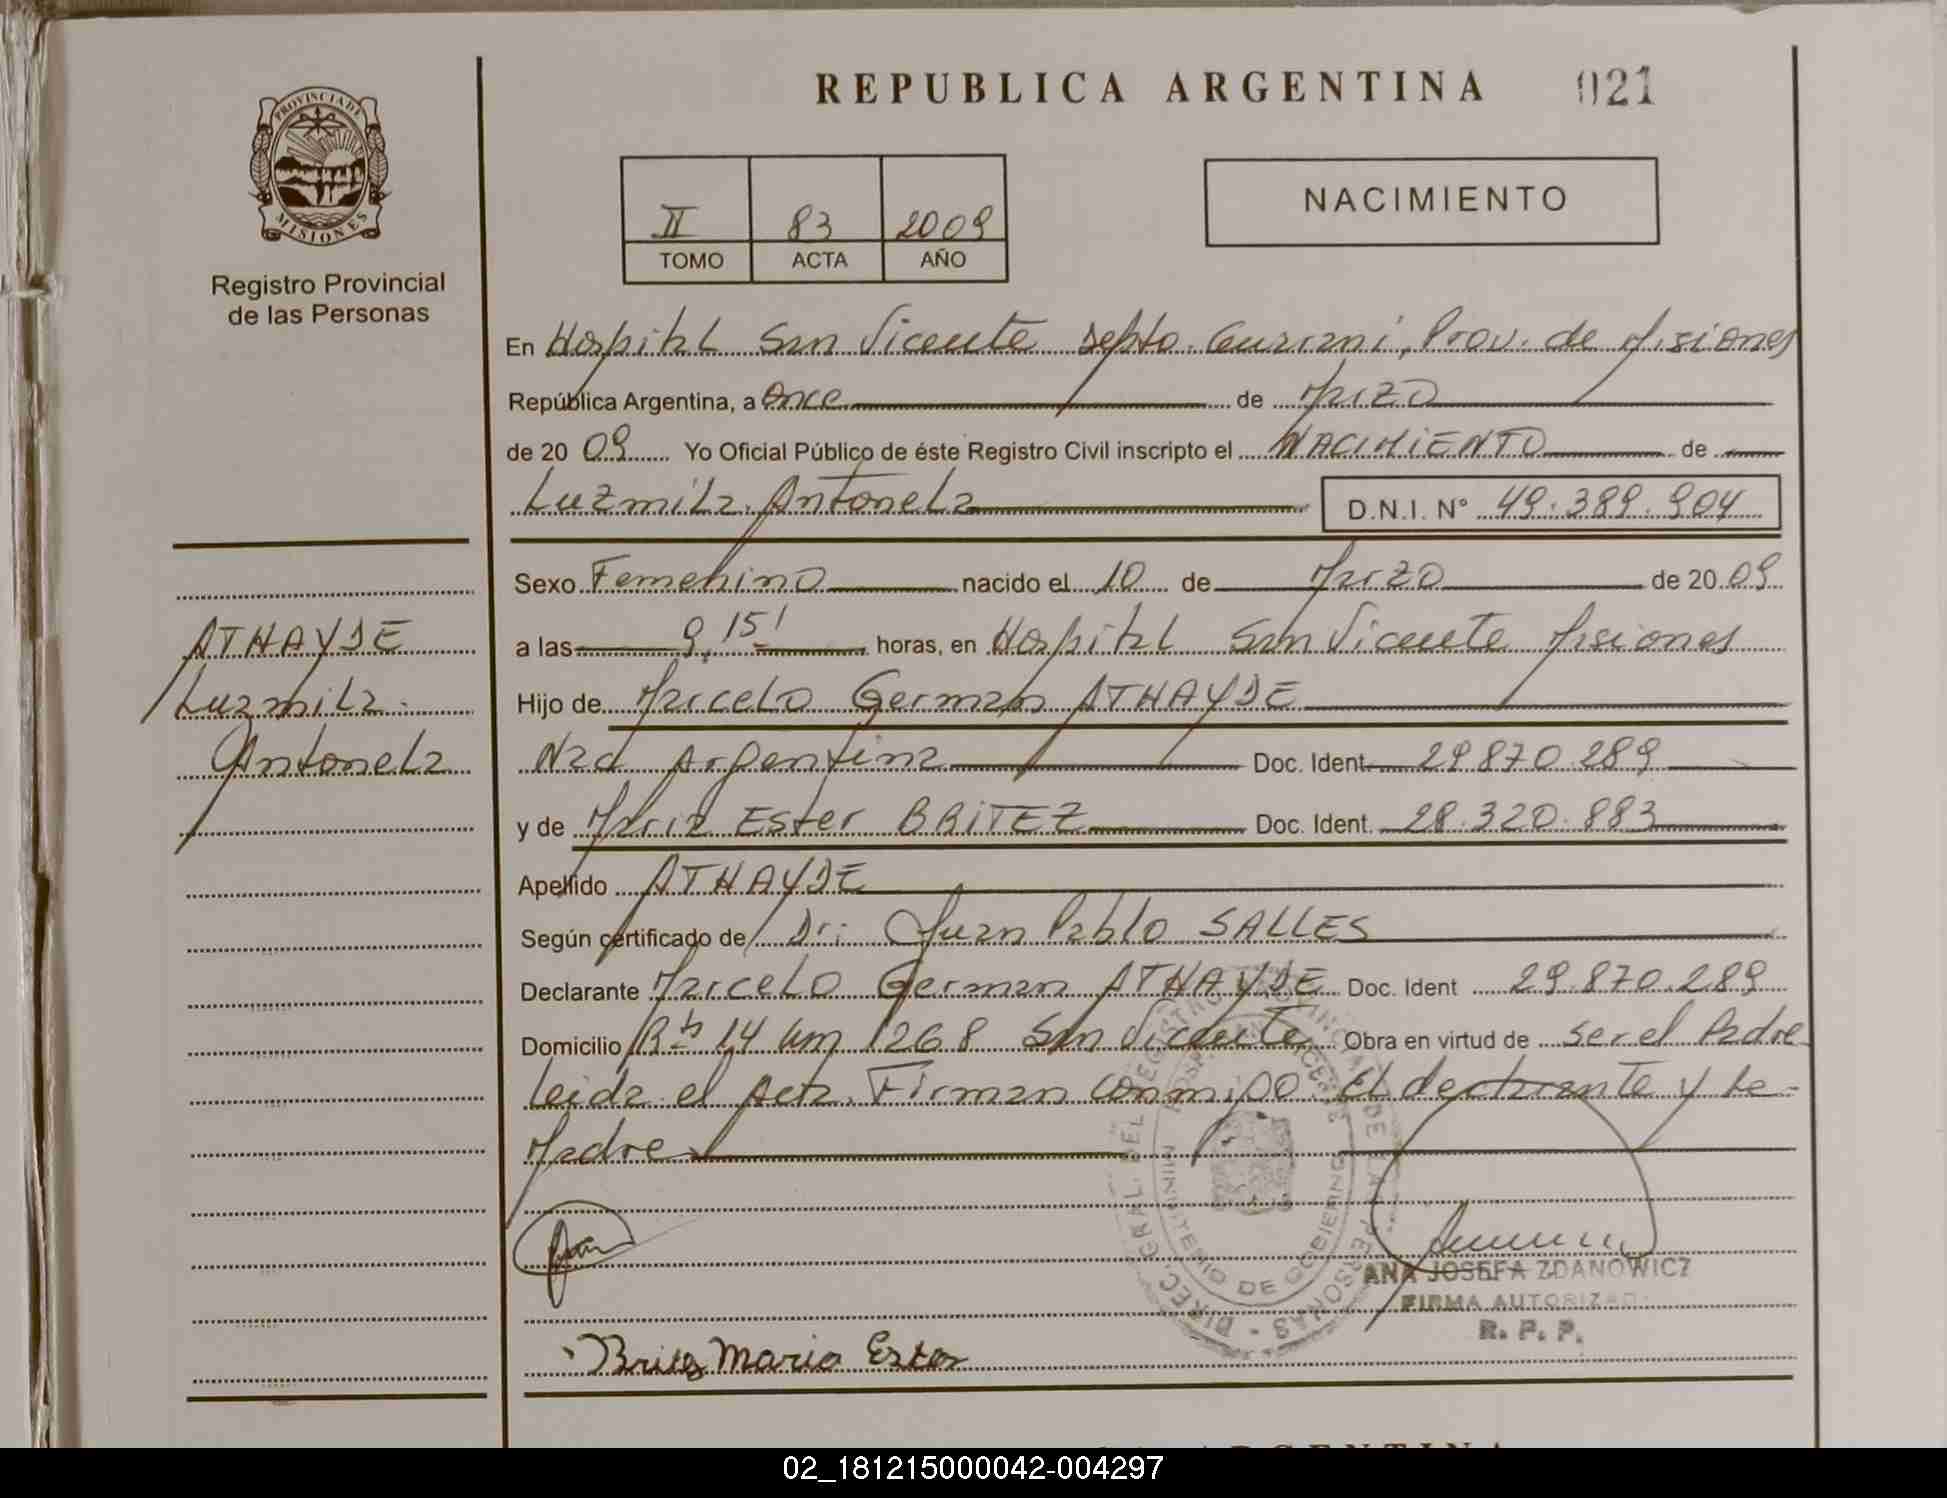 REPUBLICA ARGENTINA 021
PROVINCIA DE
MISIONES
Registro Provincial
de las Personas
II 83 2009
TOMO ACTA AÑO
NACIMIENTO
En Hospital San Vicente Depto. Guarani, Prov. de Misiones
República Argentina, a Once de Marzo
de 20 09 Yo Oficial Público de éste Registro Civil inscripto el NACIMIENTO de
Luzmila Antonela D.N.I. N° 49.389.904
Sexo Femenino nacido el 10 de Marzo de 20 09
ATHAYDE
Luzmila
Antonela
a las 9,15' horas, en Hospital San Vicente Misiones
Hijo de Marcelo German ATHAYDE
Nac Argentina Doc. Ident 29.870.289
y de Maria Ester BRITEZ Doc. Ident. 28.320.883
Apellido ATHAYDE
Según certificado de Dr: Juan Pablo SALLES
Declarante Marcelo German ATHAYDE Doc. Ident 29.870.289
Domicilio Rta 14 km 1268 San Vicente Obra en virtud de ser el Padre
Leida el Acta. Firman conmigo El declarante y la
Madre
DIREC. GRAL. DEL REGISTRO PROVINCIAL DE LAS PERSONAS
HOSP. SAN VICENTE
MINISTERIO DE GOBIERNO
ANA JOSEFA ZDANOWICZ
FIRMA AUTORIZADA
R. P. P.
Brites Maria Ester
ARGENTINA
02_181215000042-004297